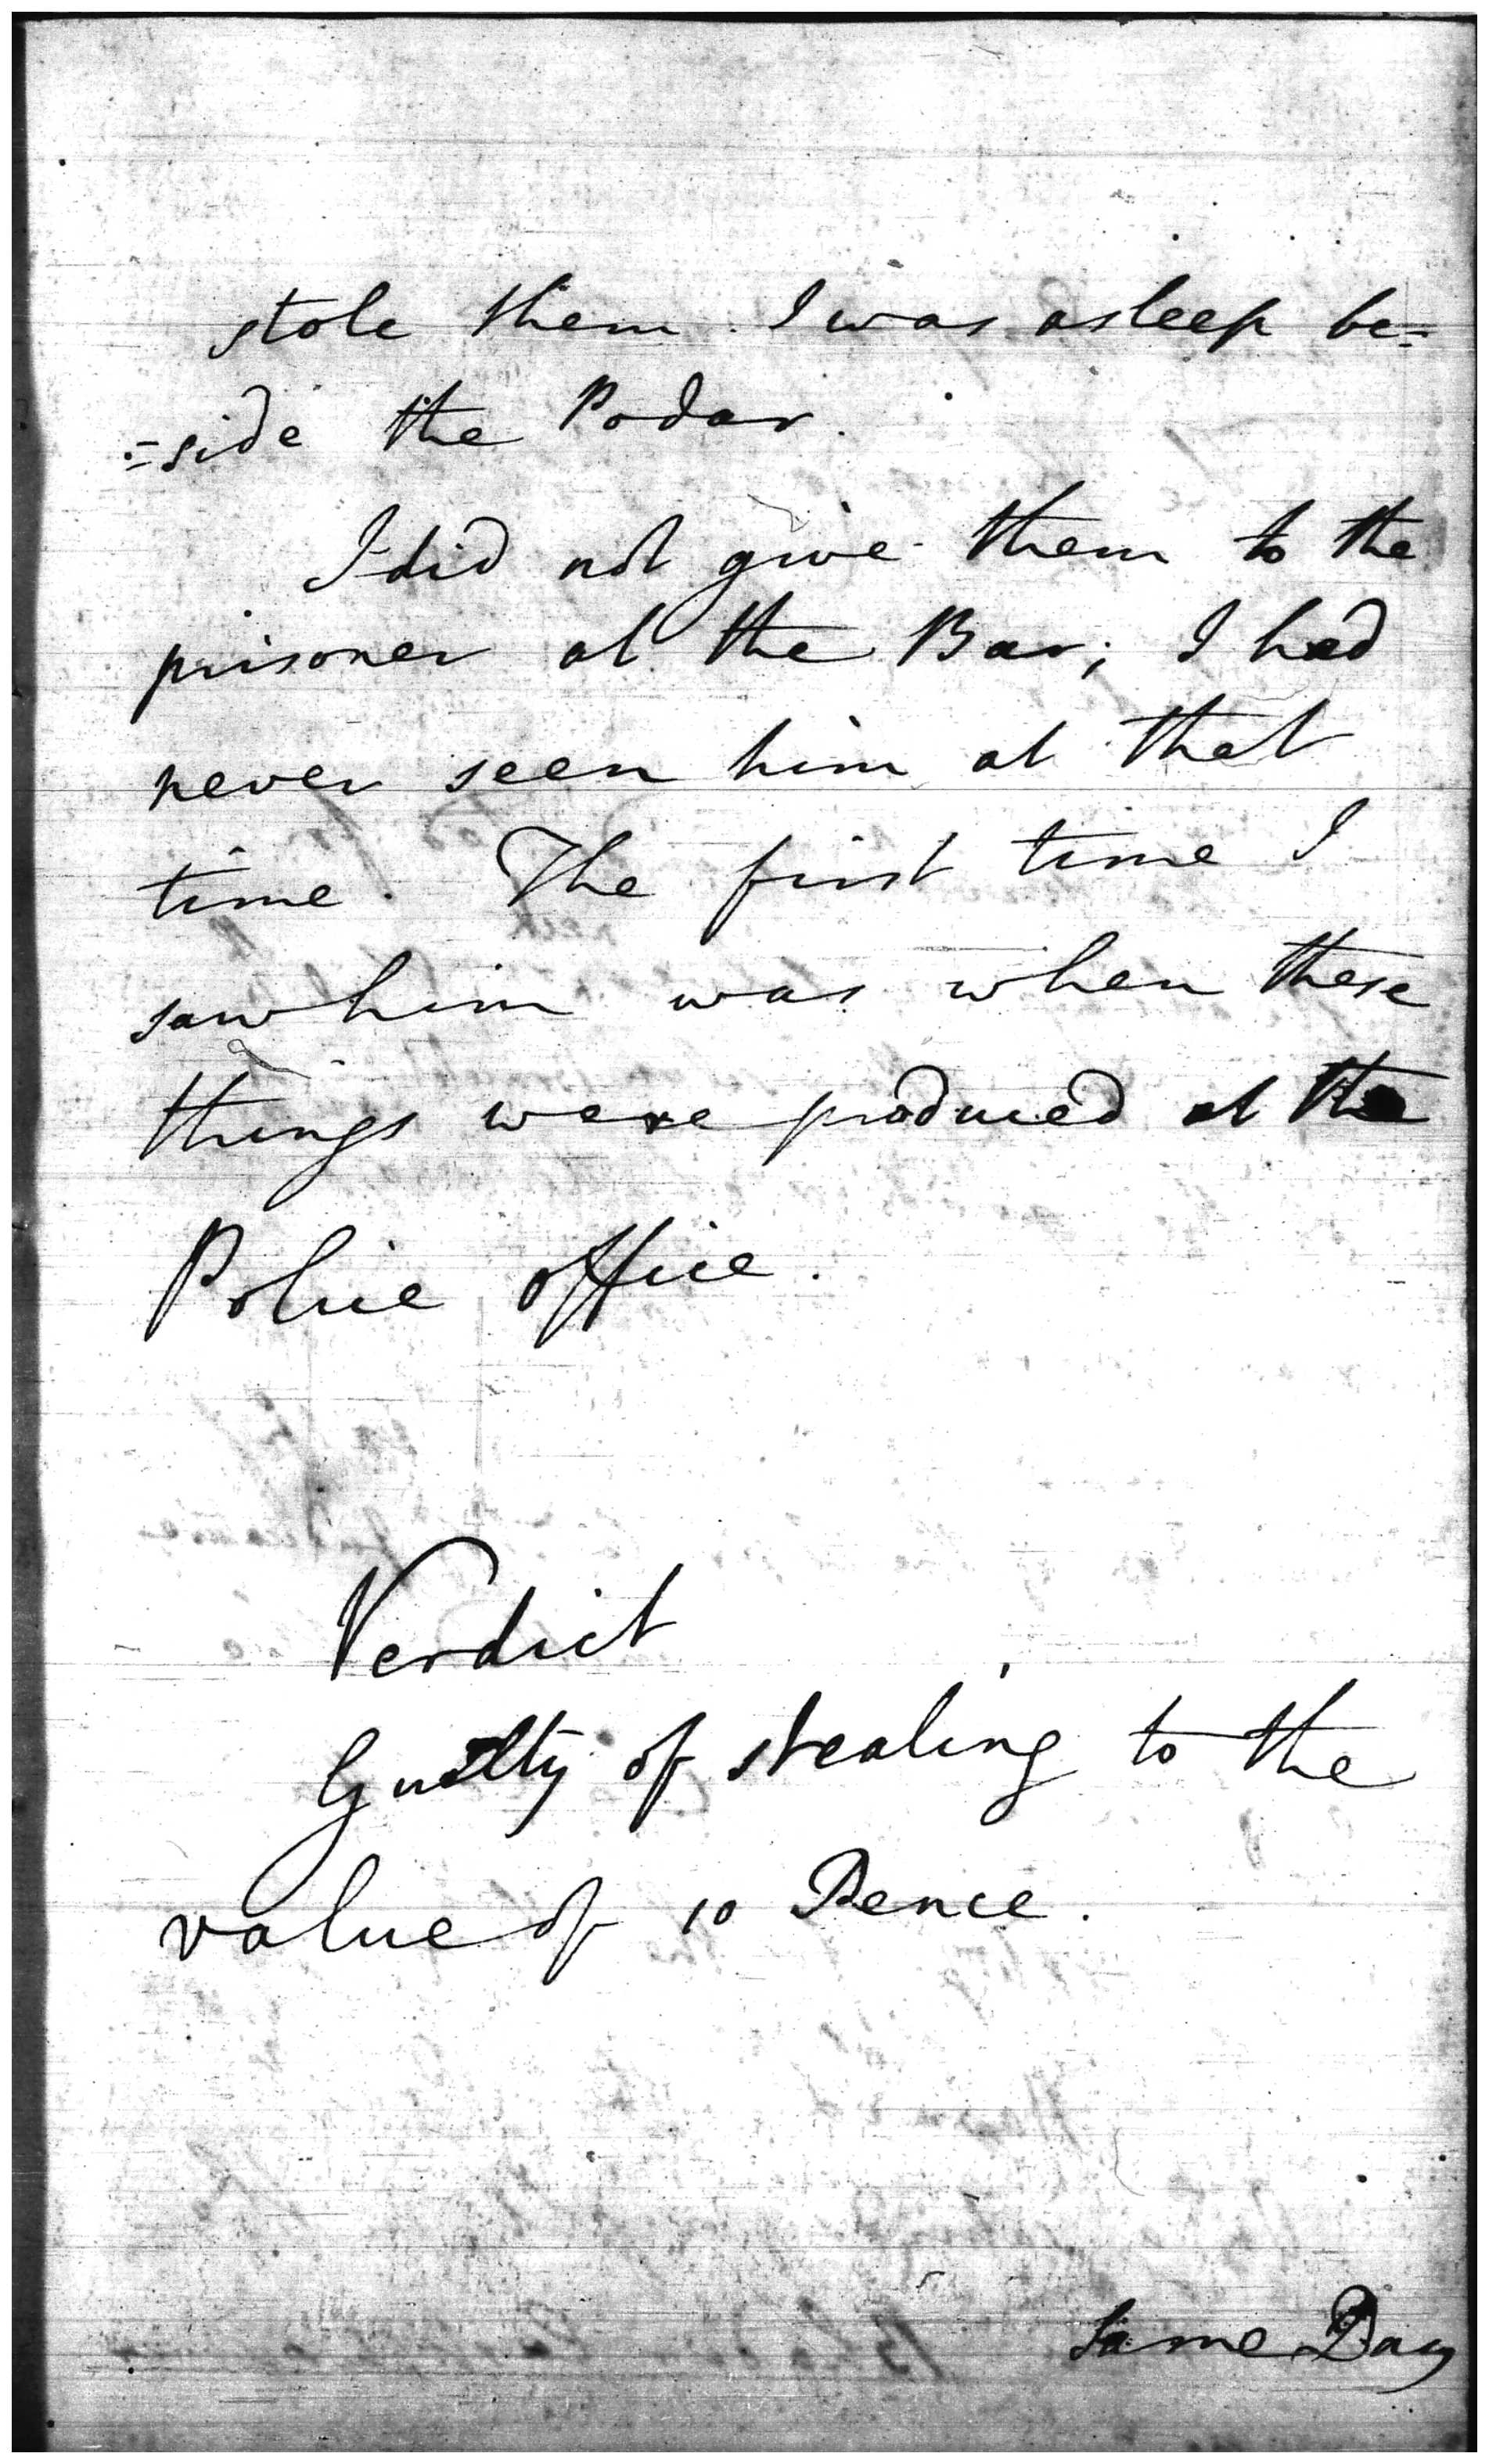 stole them. I was asleep be=
=side the Podar.
I did not give them to the
prisoner at the Bar; I had
never seen him at that
time. The first time I
saw him was when these
things were produced at the
Police office.
Verdict
Guilty of stealing to the
value of 10 Pence.
Same Day